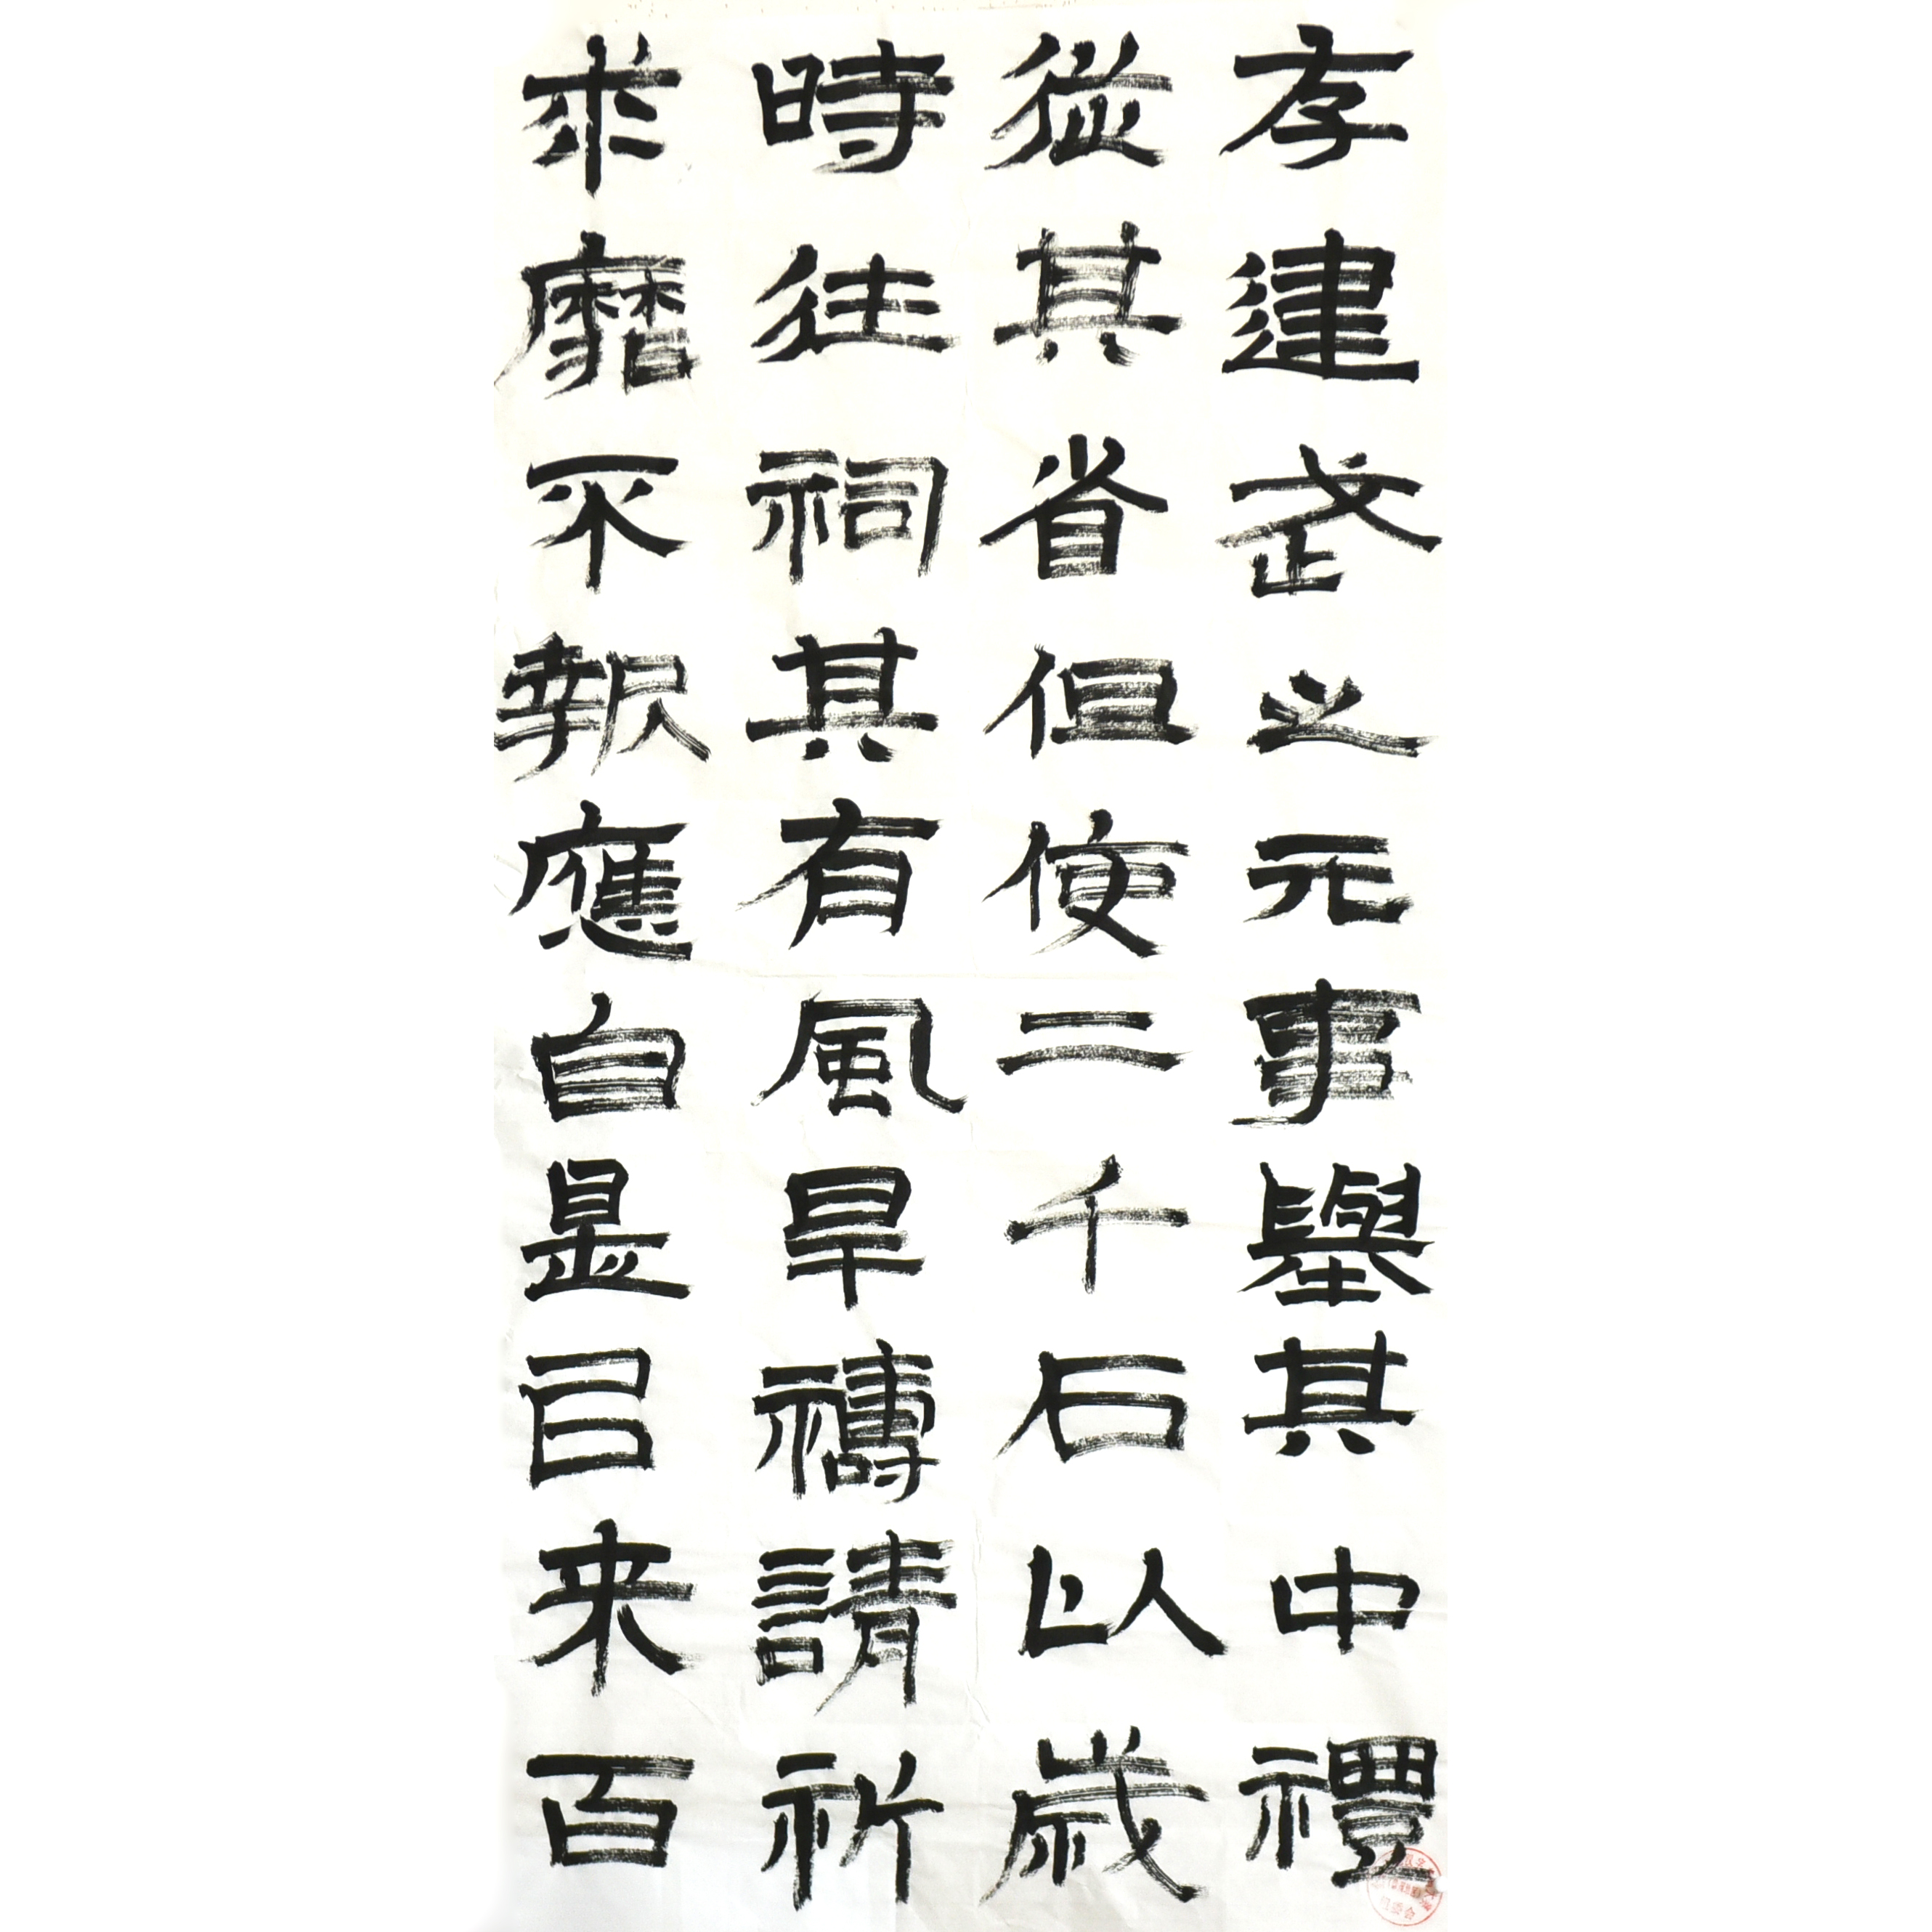 存建武之元事舉其中禮
從其省但使二千石以歲
時往祠其有風旱禱請祈
求靡不報應自是㠯来百